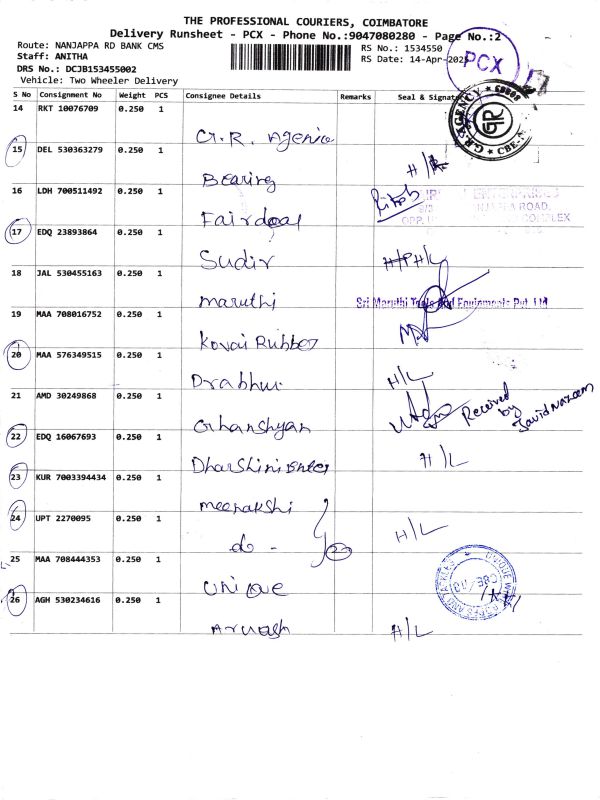 THE PROFESSIONAL COURIERS, COIMBATORE
Delivery Runsheet - PCX - Phone No.:9047080280 - Page No.:2
Route: NANJAPPA RD BANK CMS
RS No.: 1534550
Staff: ANITHA
RS Date: 14-Apr-202
DRS No.: DCJB153455002
Vehicle: Two Wheeler Delivery
PCX
S No Consignment No Weight PCS Consignee Details Remarks Seal & Signat
14 RKT 10076709 0.250 1 G.R. Agencie
G.R. AGENCY ★ CBE
GR
15 DEL 530363279 0.250 1 Bearing H/
16 LDH 700511492 0.250 1 Fairdeal
OPP. COMPLEX
17 EDQ 23893864 0.250 1 Sudir H/L
18 JAL 530455163 0.250 1 Maruthi
Sri Maruthi Tools And Equipments Pvt. Ltd
19 MAA 708016752 0.250 1 Kovai Rubber
20 MAA 576349515 0.250 1 Prabhu H/L
21 AMD 30249868 0.250 1 Ghanshyam Received by Javid Nazeem
22 EDQ 16067693 0.250 1 Dharshini Enter H/L
23 KUR 7003394434 0.250 1 Meenakshi
24 UPT 2270095 0.250 1 do - 2 H/L
25 MAA 708444353 0.250 1 Unique
UNIQUE WIRE ROPES AND TACKLES ★
26 AGH 530234616 0.250 1 H/L